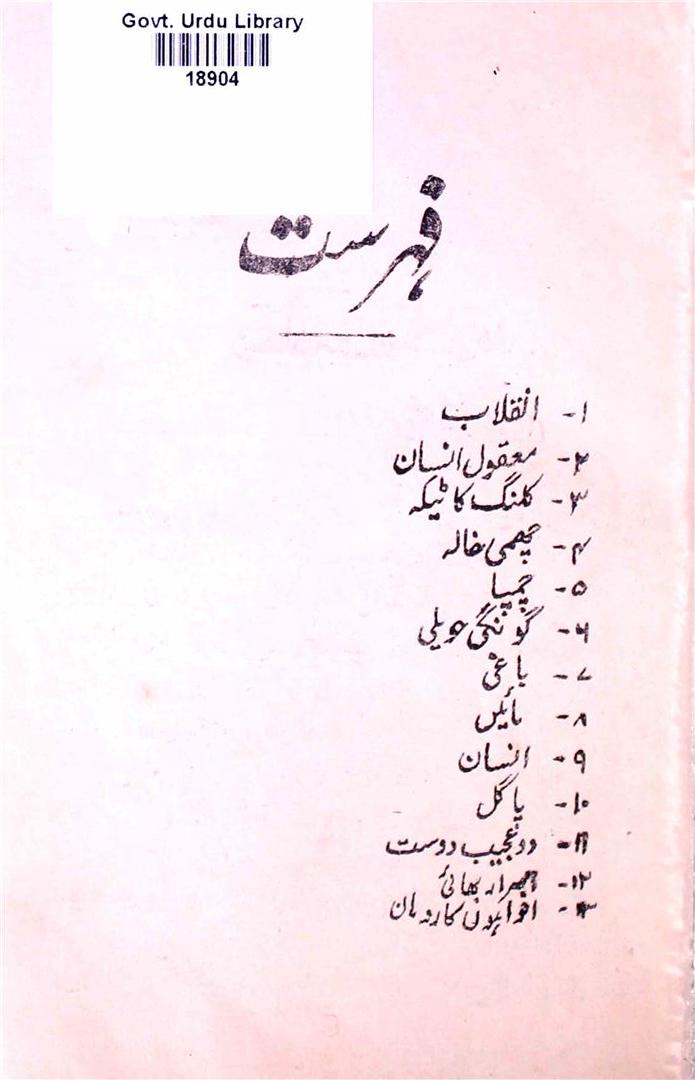 Govt. Urdu Library
18904
فہرست
۱- انقلاب
۲- معقول انسان
۳- کلنگ کا ٹیکہ
۴- چھمی خالہ
۵- چمپا
۶- گونگی حویلی
۷- باغی
۸- مائیں
۹- انسان
۱۰- پاگل
۱۱- دو عجیب دوست
۱۲- بھائی
۱۳- افواہوں کا رومان